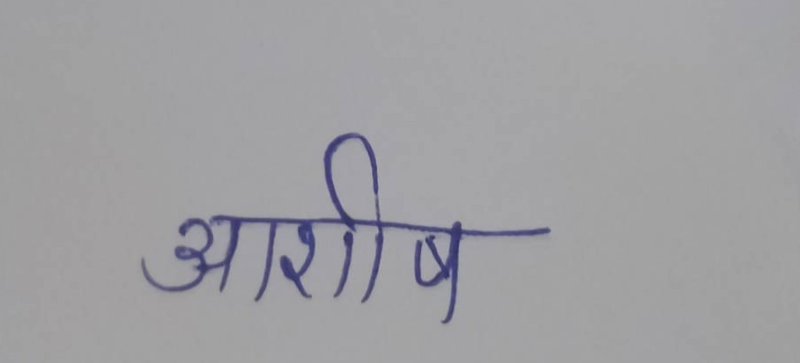 आशीष